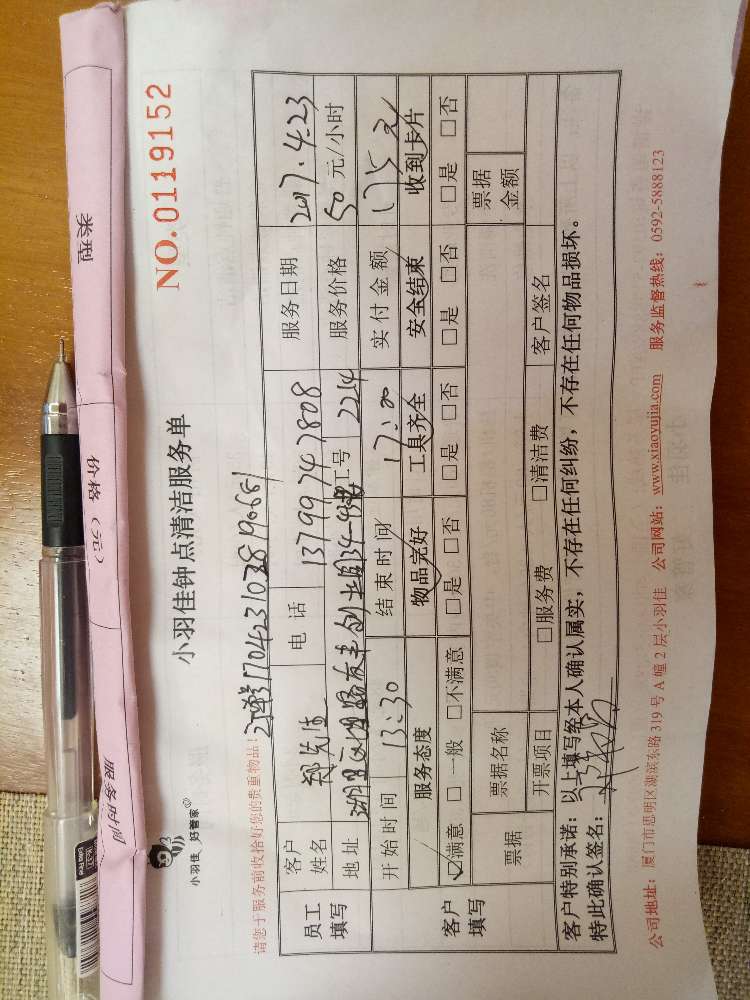 类型
价格（元）
服务时间
NO.0119152
小羽佳 好管家
小羽佳钟点清洁服务单
请您于服务前收拾好您的贵重物品！
员工填写 客户姓名 郑先生 电话 13799747808 服务日期 2017.4.23
地址 工号 2214 服务价格 50 元/小时
开始时间 13:30 结束时间 17:00 实付金额 175元
客户填写 服务态度 物品完好 工具齐全 安全结束 收到卡片
☑满意 □一般 □不满意 □是 □否 □是 □否 □是 □否 □是 □否
票据 票据名称 票据金额
开票项目 □服务费 □清洁费 客户签名
客户特别承诺：以上填写经本人确认属实，不存在任何纠纷，不存在任何物品损坏。
特此确认签名：
公司地址：厦门市思明区湖滨东路 319 号 A 幢 2 层小羽佳 公司网站：www.xiaoyujia.com 服务监督热线：0592-5888123